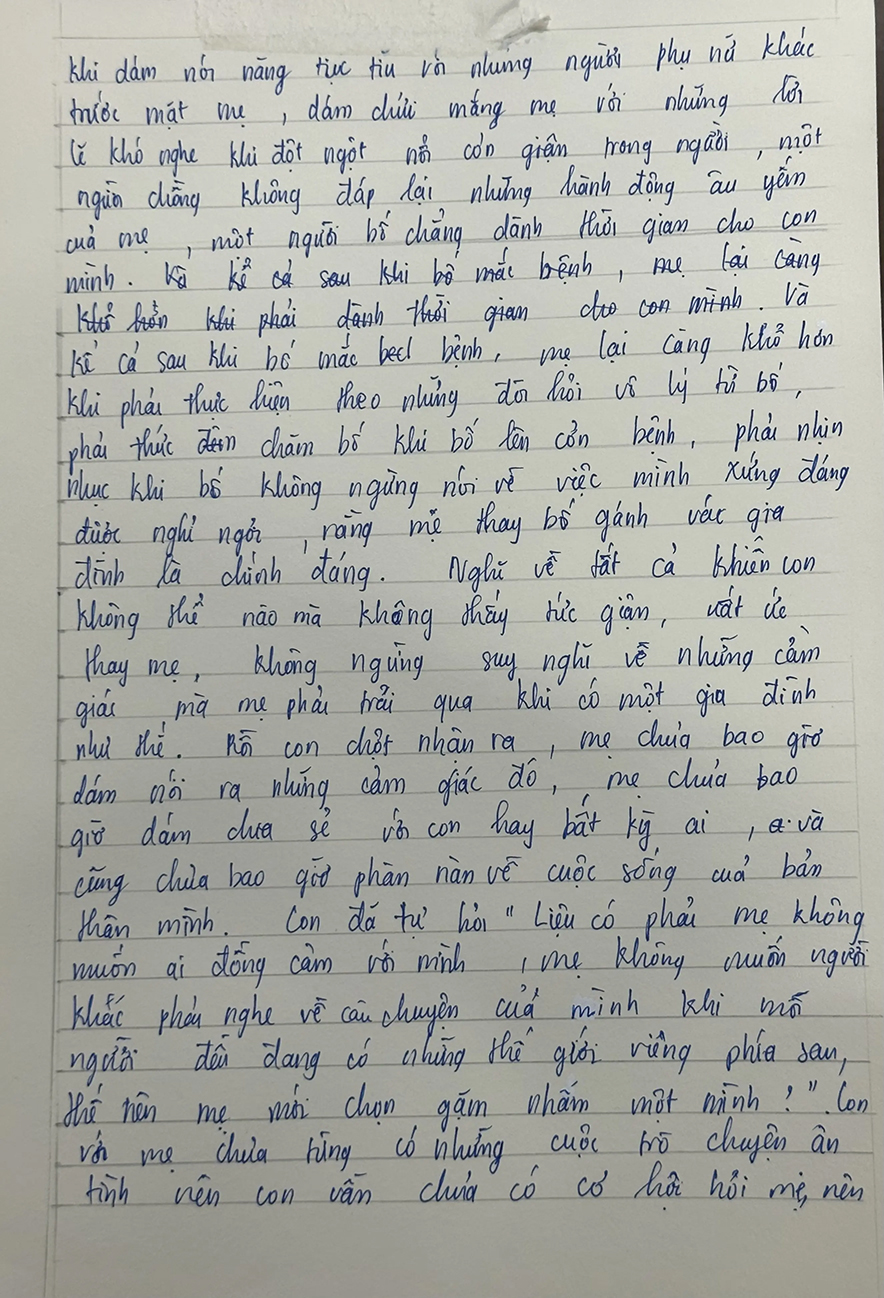 khi dám nói năng tục tĩu với những người phụ nữ khác
trước mặt mẹ, dám chửi mắng mẹ với những lời
lẽ khó nghe khi đột ngột nổi cơn giận trong người, một
người chồng không đáp lại những hành động âu yếm
của mẹ, một người bố chẳng dành thời gian cho con
mình. Và kể cả sau khi bố mắc bệnh, mẹ lại càng
khổ hơn khi phải dành thời gian cho con mình. Và
kể cả sau khi bố mắc becl bệnh, mẹ lại càng khổ hơn
khi phải thực hiện theo những đòi hỏi vô lý từ bố,
phải thức đêm chăm bố khi bố lên cơn bệnh, phải nhịn
nhục khi bố không ngừng nói về việc mình xứng đáng
được nghỉ ngơi, rằng mẹ thay bố gánh vác gia
đình là chính đáng. Nghĩ về tất cả khiến con
không thể nào mà không thấy tức giận, uất ức
thay mẹ, không ngừng suy nghĩ về những cảm
giác mà mẹ phải trải qua khi có một gia đình
như thế. Rồi con chợt nhận ra, mẹ chưa bao giờ
dám nói ra những cảm giác đó, mẹ chưa bao
giờ dám chia sẻ với con hay bất kỳ ai, và
cũng chưa bao giờ phàn nàn về cuộc sống của bản
thân mình. Con đã tự hỏi "Liệu có phải mẹ không
muốn ai đồng cảm với mình, mẹ không muốn người
khác phải nghe về câu chuyện của mình khi mỗi
người đều đang có những thế giới riêng phía sau,
thế nên mẹ mới chọn gặm nhấm một mình?". Con
với mẹ chưa từng có những cuộc trò chuyện ân
tình nên con vẫn chưa có cơ hội hỏi mẹ, nên